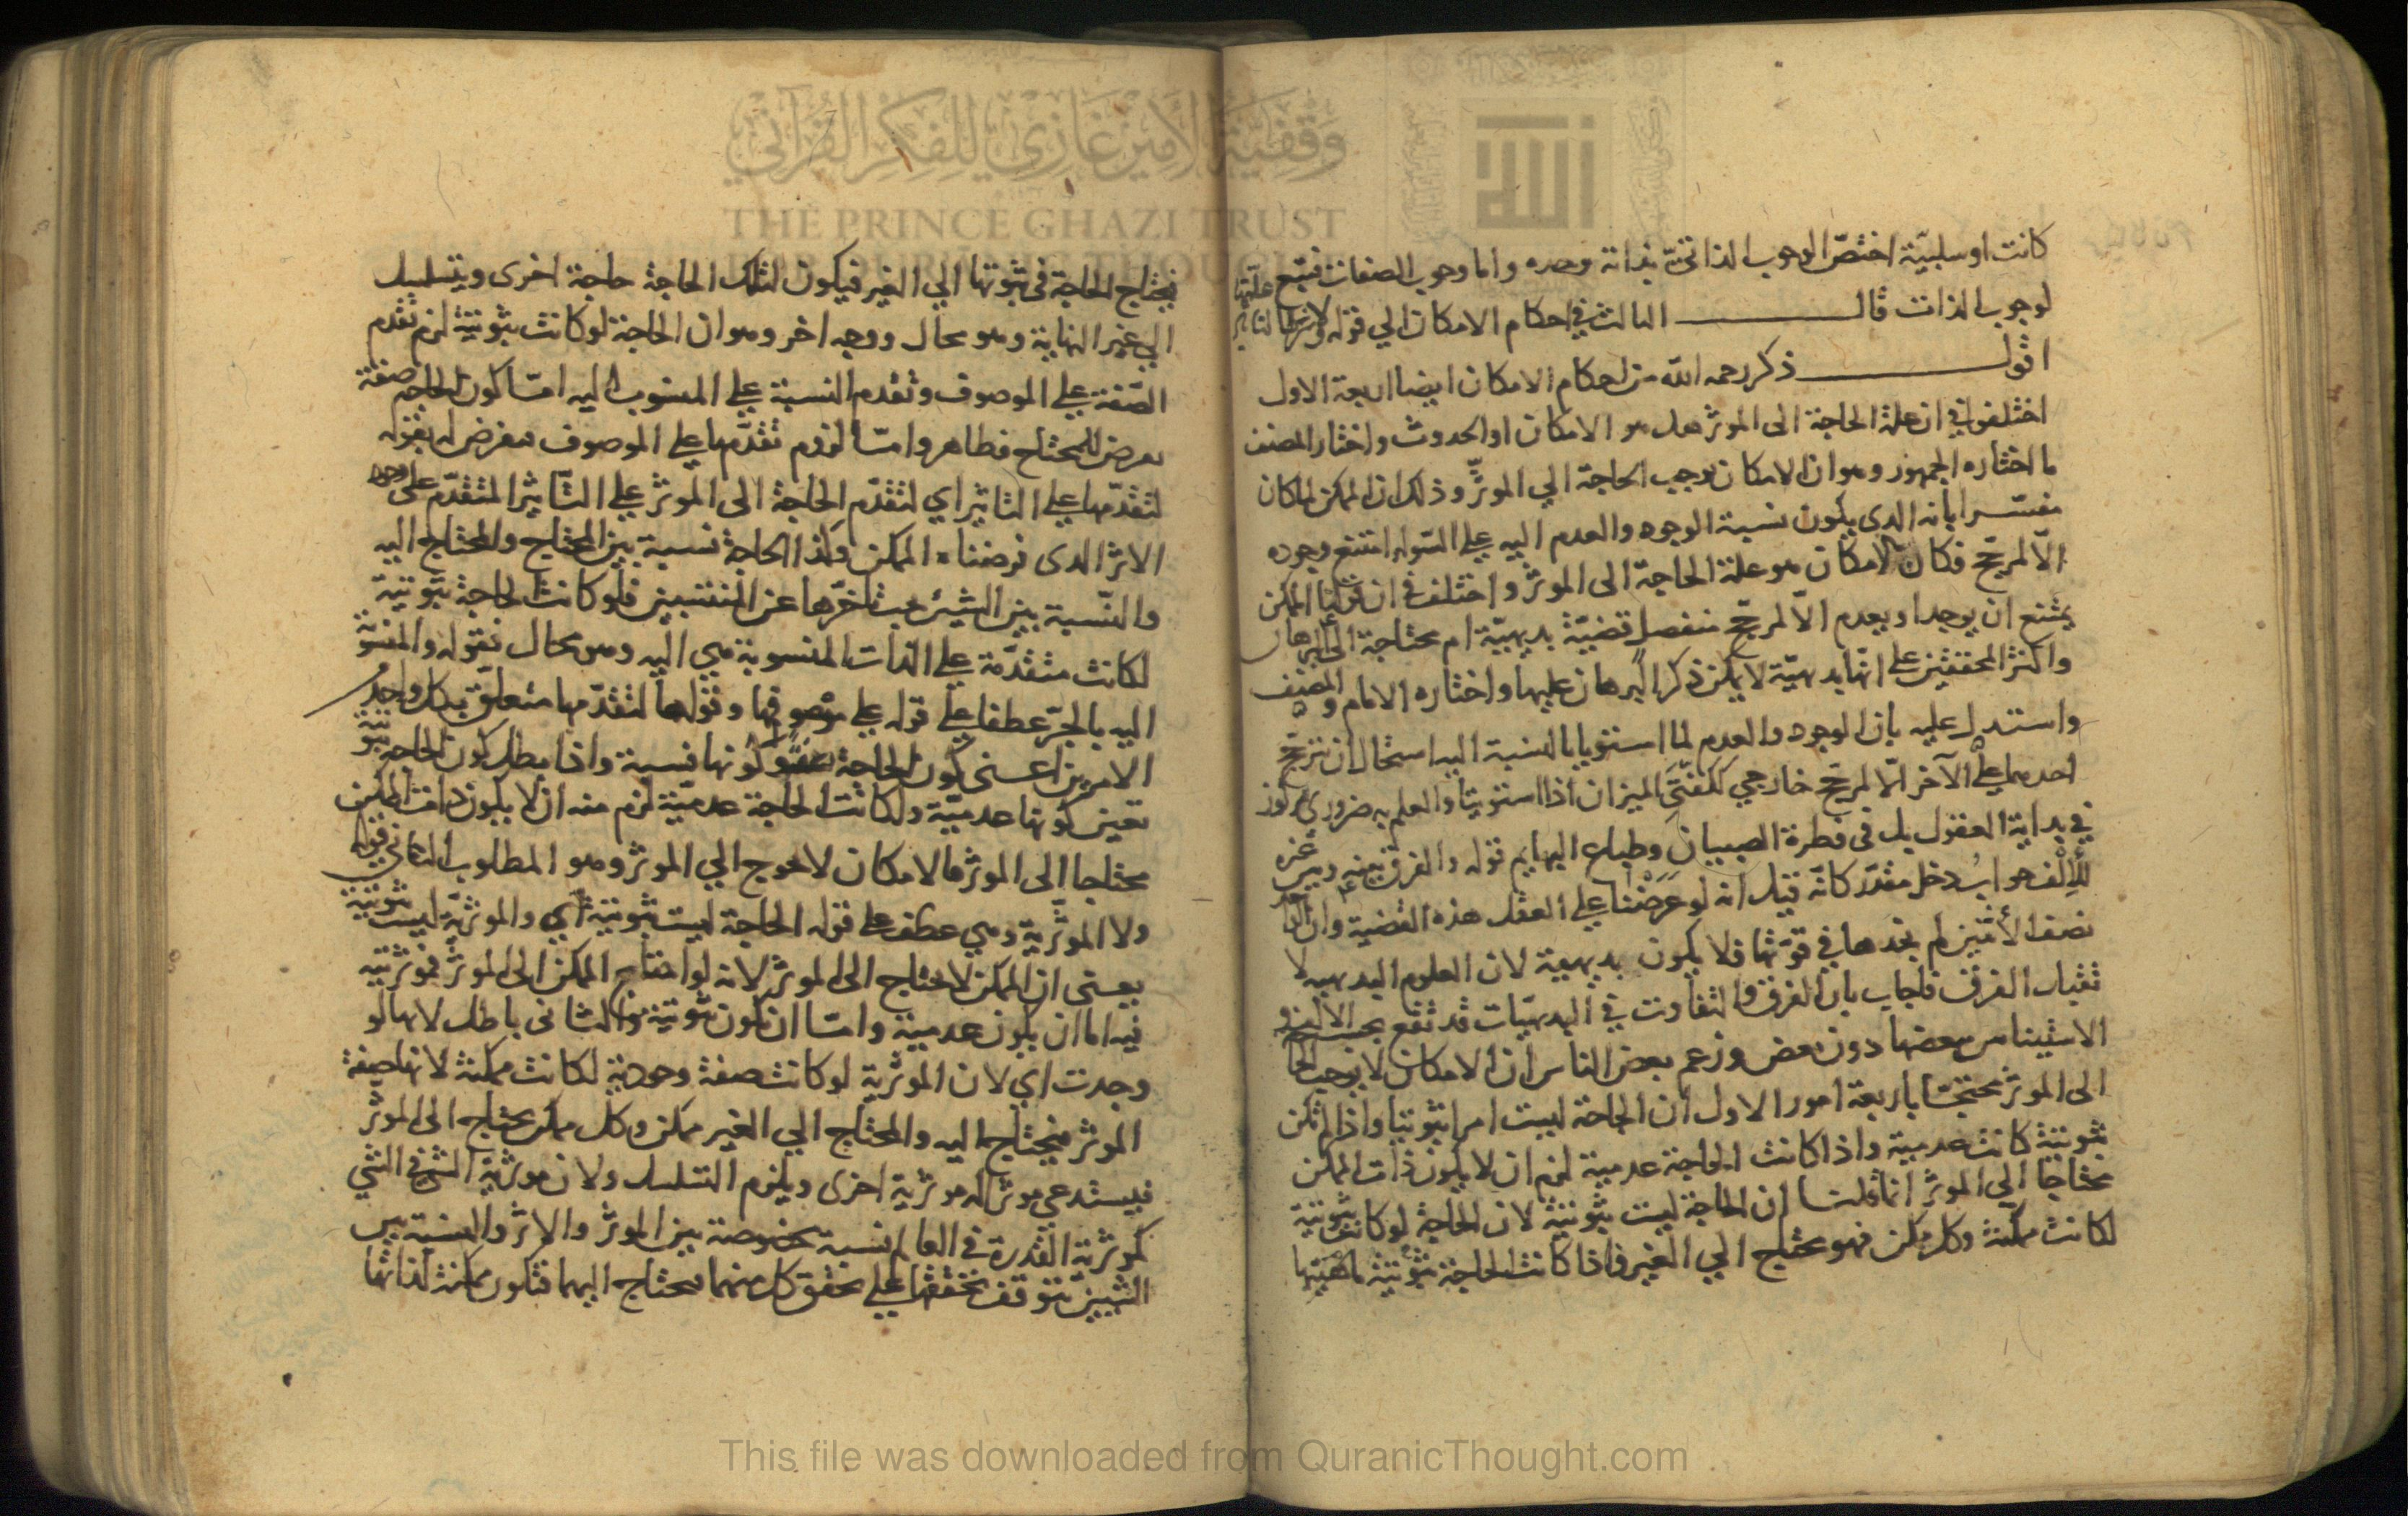 وقفية الأمير غازي للفكر القرآني
THE PRINCE GHAZI TRUST
الله
كانت او سلبيّة اختصّ الوجوب الذاتى بذاته وحده واما وجوب الصفات فتبع علّتها
لوجوب الذات قال الثالث في احكام الامكان الي قوله
اقول ذكر رحمه الله من احكام الامكان ايضا اربعة الاول
اختلفوا في ان علة الحاجة الى الموثر هل هو الامكان او الحدوث واختار المصنف
ما اختاره الجمهور وهو ان الامكان يوجب الحاجة الي الموثّر وذلك ان الممكن لما كان
مفسّرا بانه الدى يكون نسبة الوجود والعدم اليه علي السّواء امتنع وجوده
الّا لمرجّح فكان الامكان هو علة الحاجة الى الموثر واختلف في ان قولنا الممكن
يمتنع ان يوجد او يعدم الّا لمرجّح منفصل قضيّة بديهيّة ام محتاجة الى البرهان
واكثر المحققين على انّها بديهيّة لا يمكن ذكر البرهان عليها واختاره الامام والمصنف
واستدل عليه بان الوجود والعدم لما استويا بالنسبة اليه استحال ان يترجّح
احدهما علي الآخر الّا لمرجّح خارجي ككفّتي الميزان اذا استويتا والعلم به ضرورى مركوز
في بداية العقول بل فى فطرة الصبيان وطباع البهايم قوله والفرق بينه وبين غيره
للإلف جواب دخل مقدّر كانّه قيل انه لو عرضنا علي العقل هذه القضية وان الواحد
نصف الاثنين لم نجدها في قوّتها فلا يكون بديهية لان العلوم البديهيه لا
تقبل الفرق فاجاب بان الفرق والتفاوت في البديهيّات قد تقع بحسب الالف و
الاستيناس ببعضها دون بعض وزعم بعض الناس ان الامكان لا يوجب الحاجة
الى الموثر محتجّا باربعة امور الاول ان الحاجة ليست امرا ثبوتيا واذا لم تكن
ثبوتية كانت عدمية واذا كانت الحاجة عدمية لزم ان لا يكون ذات الممكن
محتاجا الى الموثر انما قلنا ان الحاجة ليست ثبوتية لان الحاجة لو كانت ثبوتية
لكانت ممكنة وكل ممكن فهو محتاج الي الغير فاذا كانت الحاجة ثبوتية
فيحتاج الحاجة فى ثبوتها الي الغير فيكون لتلك الحاجة حاجة اخرى ويتسلسل
الي غير النهاية وهو محال ووجه اخر وهو ان الحاجة لو كانت ثبوتية لزم تقدم
الصّفة علي الموصوف وتقدم النسبة علي المنسوب اليه امّا كون الحاجه صفة
تعرض للمحتاج فظاهر وامّا لزوم تقدّمها علي الموصوف فعرض له بقوله
لتقدّمها علي التاثير اي لتقدّم الحاجة الى الموثر علي التّاثير المتقدّم على وجود
الاثر الدى فرضناه الممكن ولذا الحاجة نسبة بين المحتاج والمحتاج اليه
والنّسبة بين الشيئين يجب تاخّرها عن المنتسبين فلو كانت الحاجة ثبوتية
لكانت متقدّمة علي الذات المنسوبة هي اليه وهو محال فقوله والمنسوبة
اليه بالجرّ عطفا على قوله علي موصوفها وقوله لتقدّمها متعلّق بكل واحد
الامرين اعني كون الحاجة صفة وكونها نسبة واذا بطل كون الحاجه ثبوتية
تعين كونها عدميّة ولو كانت الحاجة عدميّة لزم منه ان لا يكون ذات الممكن
محتاجا الى الموثر فالامكان لا يحوج الي الموثر وهو المطلوب الثانى قوله
ولا الموثّرية وهي عطف على قوله الحاجة ليست ثبوتية اي والموثريّة ليست ثبوتية
يعنى ان الممكن لا يحتاج الى الموثر لانه لو احتاج الممكن الى الموثر فموثريته
فيه اما ان يكون عدمية وامّا ان يكون ثبوتية والثانى باطل لانها لو
وجدت اي لان الموثّرية لو كانت صفة وجودية لكانت ممكنة لانها صفة
الموثر فيحتاج اليه والمحتاج الي الغير ممكن وكل ممكن محتاج الى الموثّر
فيستدعي موثرا له موثرية اخرى ويلزم التسلسل ولان موثرية الشئ في الشي
كموثرية القدرة في العالم نسبة مخصوصة بين الموثر والاثر والنسبة بين
الشيئين يتوقف تحققها علي تحقق كل منهما فيحتاج اليهما فتكون ممكنة لذاتها
This file was downloaded from QuranicThought.com